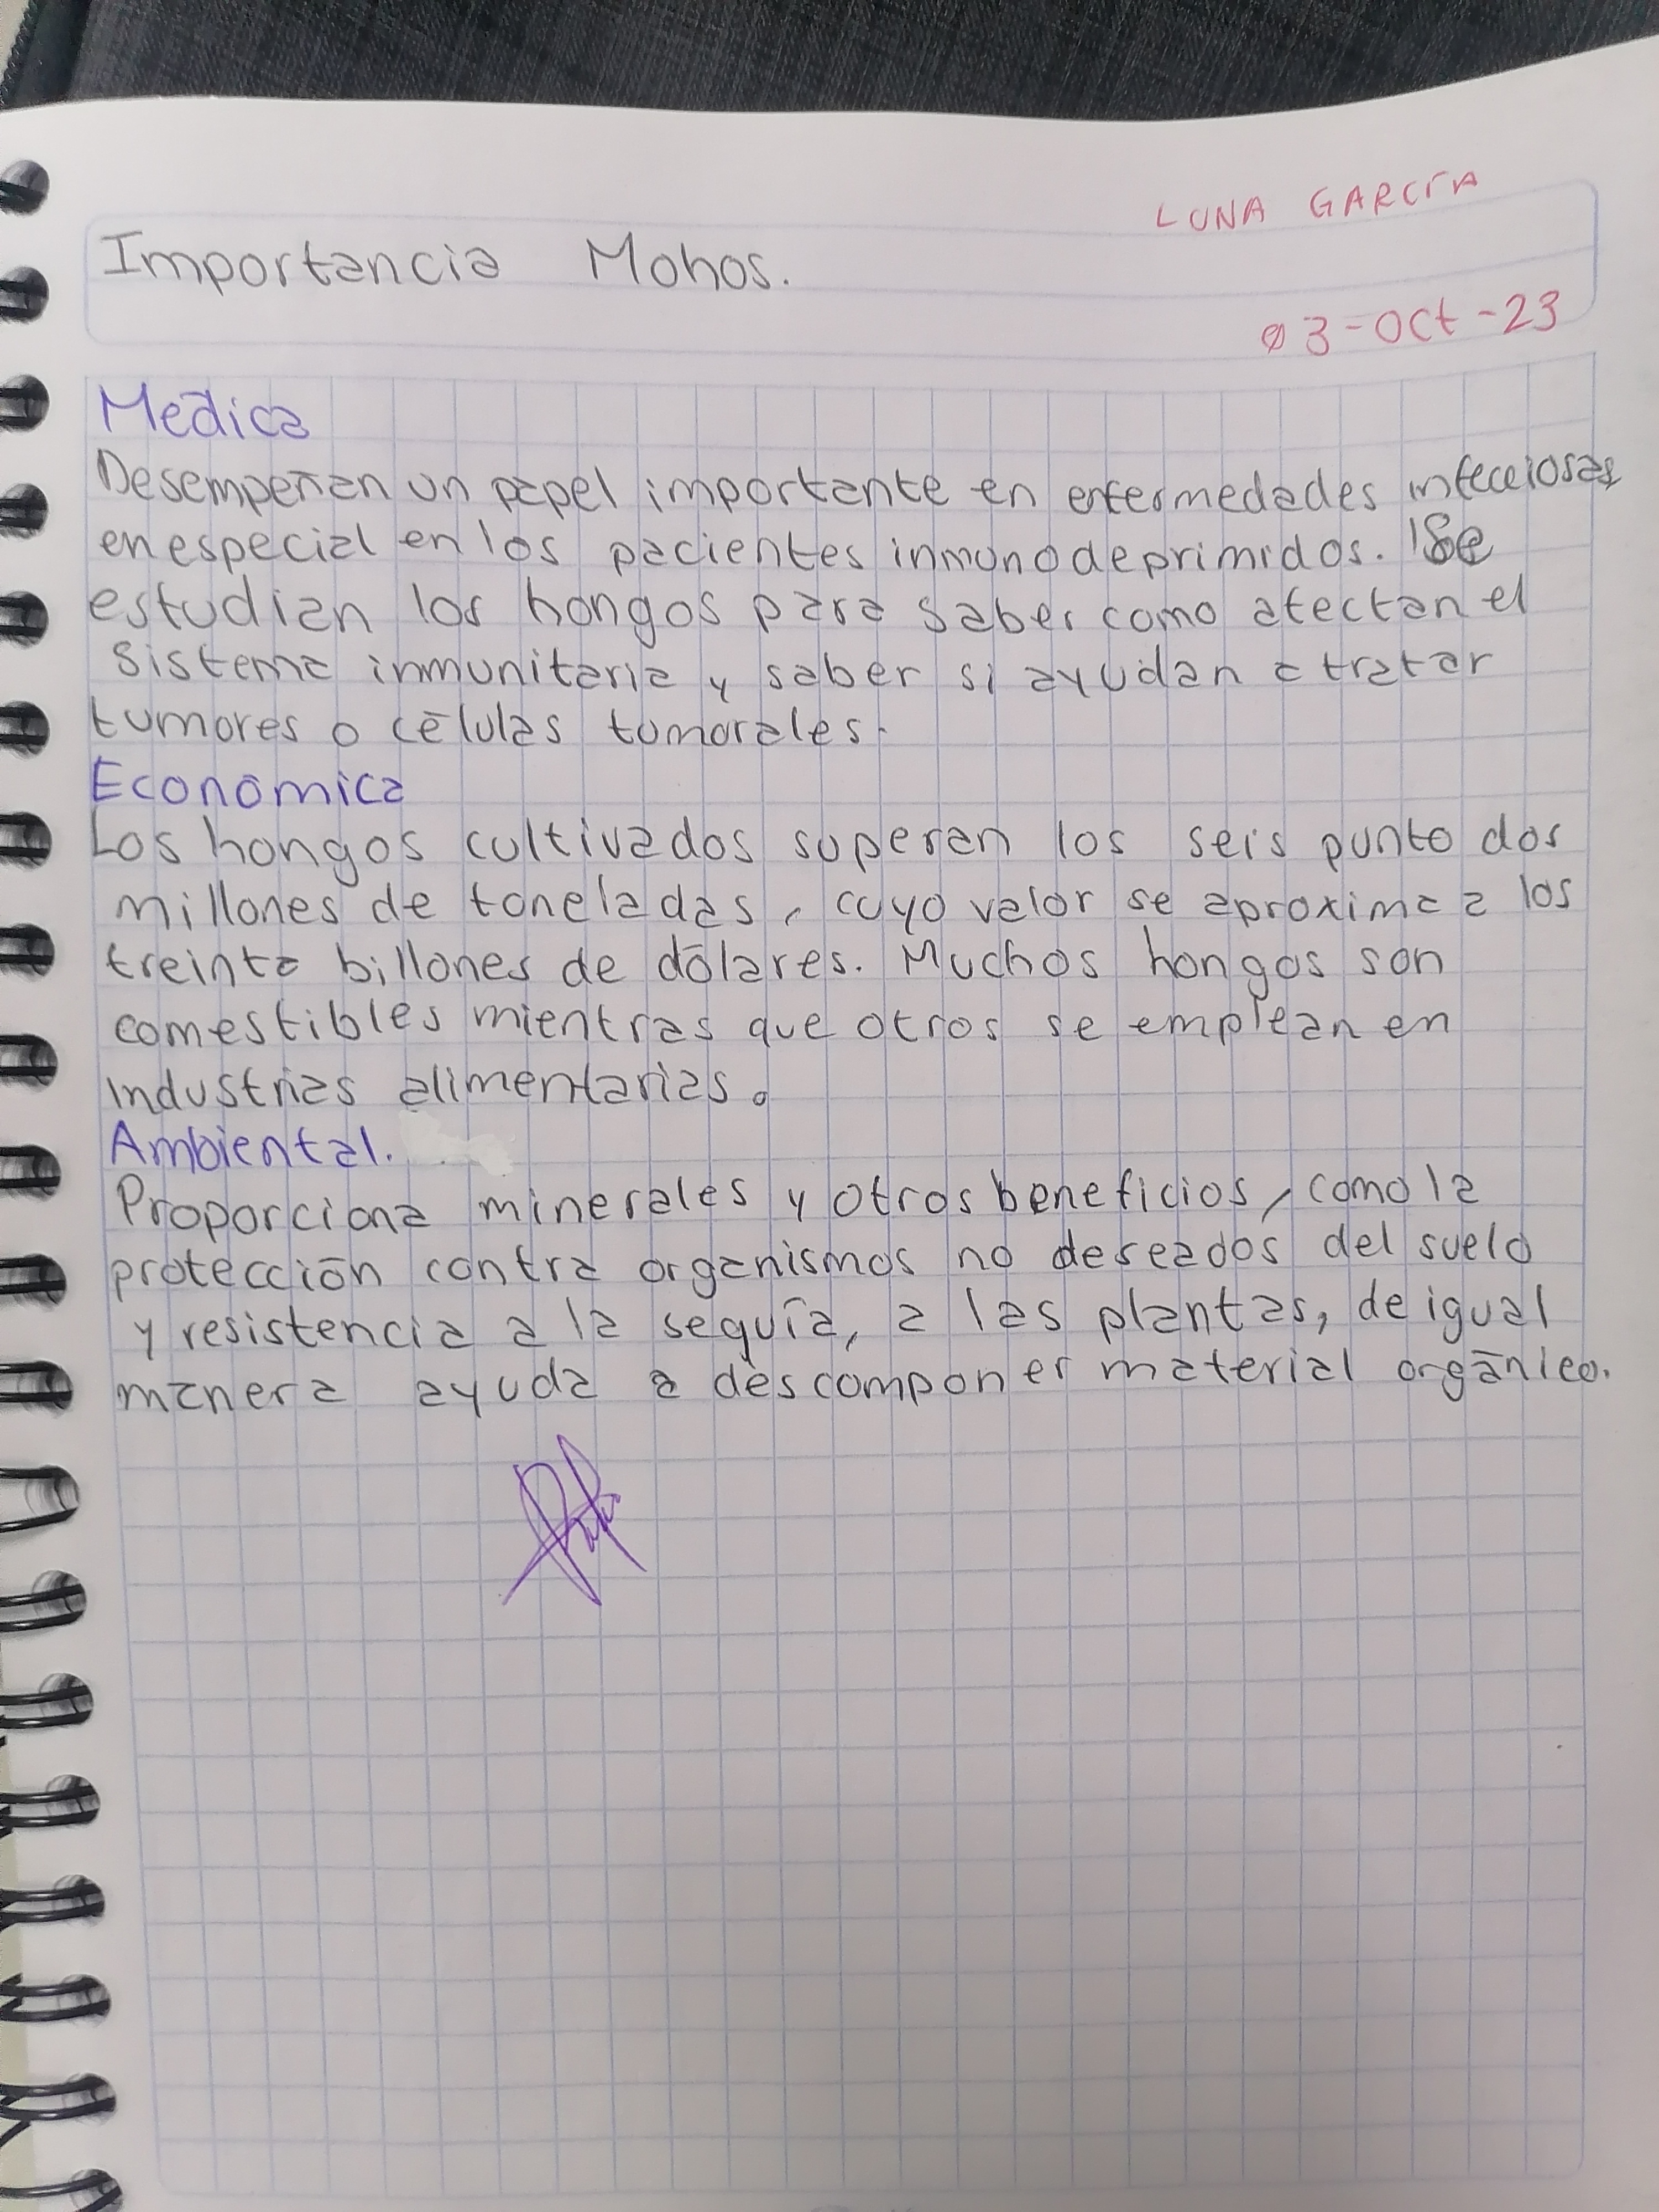 LUNA GARCÍA
Importancia Mohos.
03-Oct-23
Médica
Desempeñan un papel importante en enfermedades infecciosas
en especial en los pacientes inmunodeprimidos. Se
estudian los hongos para saber como afectan el
sistema inmunitaria y saber si ayudan a tratar
tumores o células tumorales.
Económica
Los hongos cultivados superan los seis punto dos
millones de toneladas, cuyo valor se aproxima a los
treinta billones de dólares. Muchos hongos son
comestibles mientras que otros se emplean en
industrias alimentarias.
Ambiental.
Proporciona minerales y otros beneficios, como la
protección contra organismos no deseados del suelo
y resistencia a la sequía, a las plantas, de igual
manera ayuda a descomponer material orgánico.